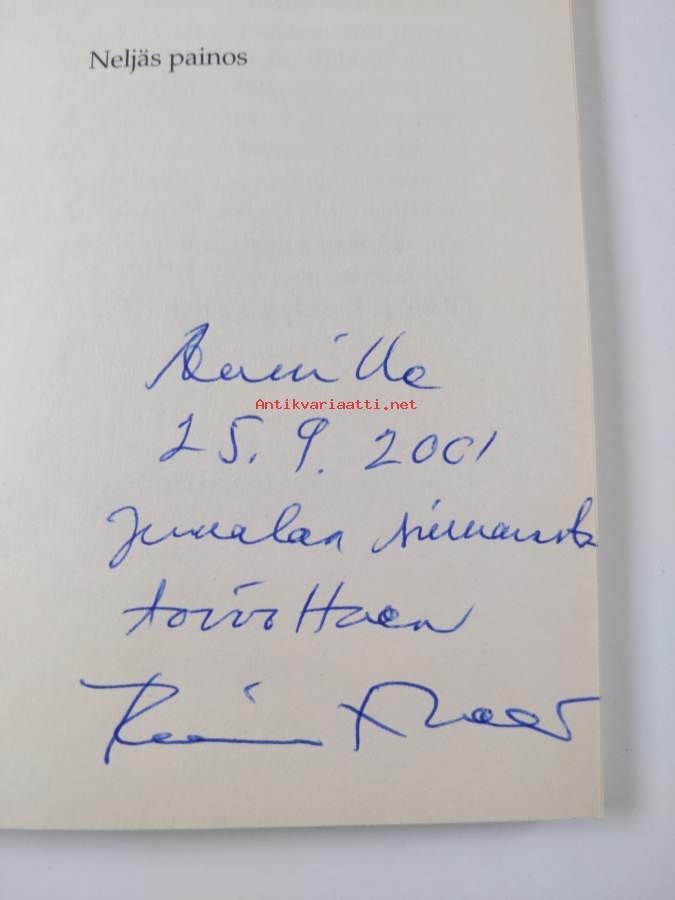 Neljäs painos
Antikvariaatti.net
25.9.2001
Jumalan siunausta
toivottaen